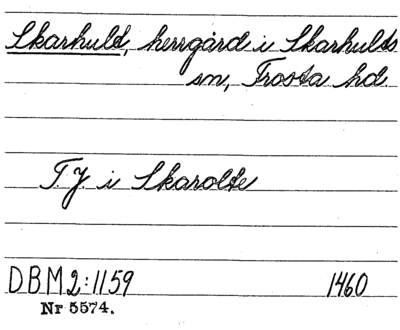 Skarhult, herrgård i Skarhults
sn, Frosta hd.
T.J. i Skarolte
DBM 2:1159 1460
Nr 5574.